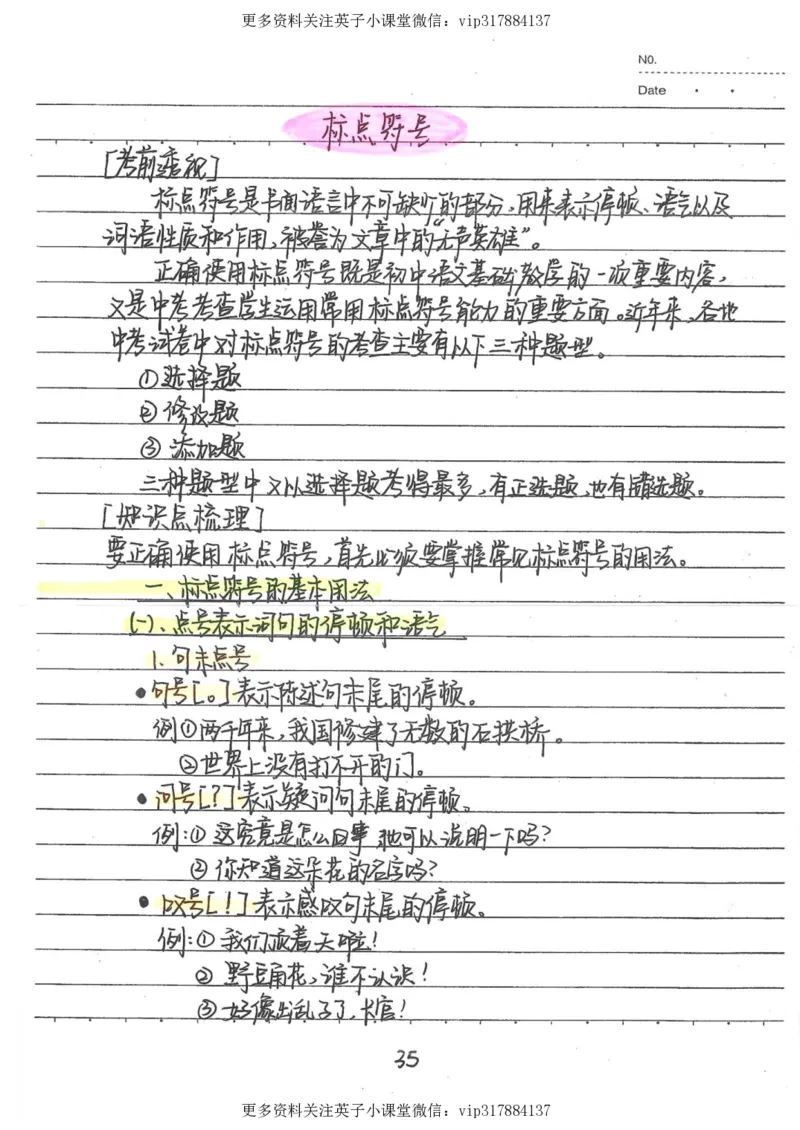 更多资料关注英子小课堂微信：vip317884137
NO.
Date
标点符号
[考前透视]
标点符号是书面语言中不可缺少的部分，用来表示停顿、语气以及
词语性质和作用，被誉为文章中的“无声英雄”。
正确使用标点符号既是初中语文基础教学的一项重要内容，
又是中考考查学生运用常用标点符号能力的重要方面。近年来，各地
中考试卷中对标点符号的考查主要有以下三种题型。
①选择题
②修改题
③添加题
三种题型中又以选择题考得最多，有正选题，也有错选题。
[知识点梳理]
要正确使用标点符号，首先必须要掌握常见标点符号的用法。
一、标点符号的基本用法
(一)、点号表示词句的停顿和语气
1.句末点号
●句号[。]表示陈述句末尾的停顿。
例①两千年来，我国修建了无数的石拱桥。
②世界上没有打不开的门。
●问号[？]表示疑问句末尾的停顿。
例：①这究竟是怎么回事 她可以说明一下吗？
②你知道这朵花的名字吗？
●叹号[！]表示感叹句末尾的停顿。
例：①我们顶着天啦！
②野豆角花，谁不认识！
③好像出乱子了，长官！
35
更多资料关注英子小课堂微信：vip317884137